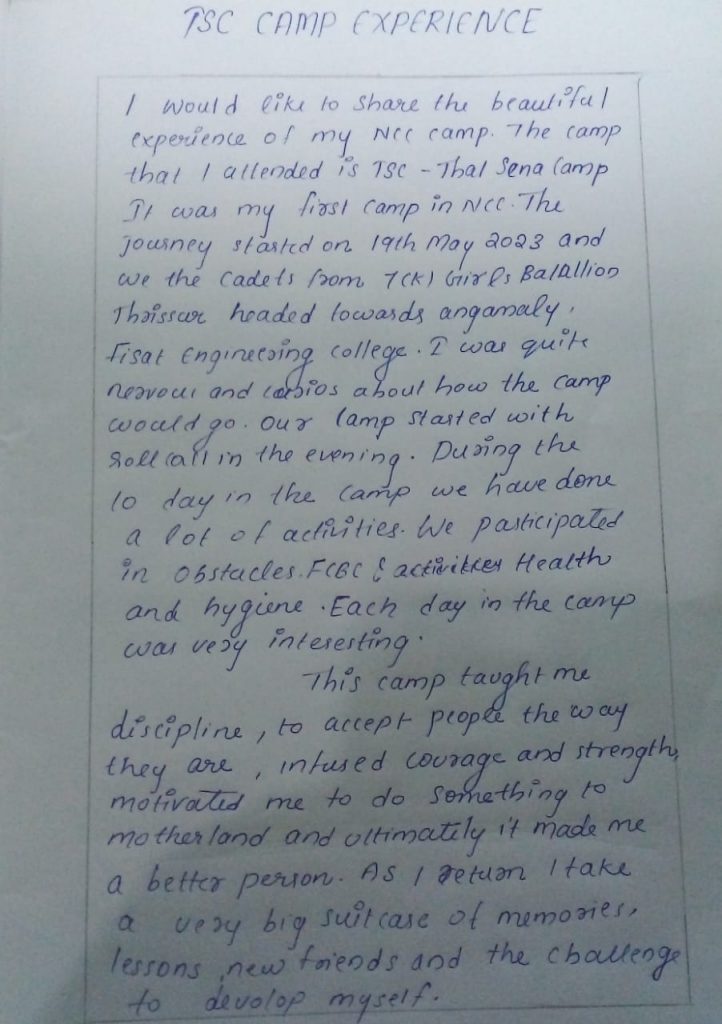 TSC CAMP EXPERIENCE
I would like to share the beautiful
experience of my NCC camp. The camp
that I attended is TSC - Thal Sena Camp
It was my first camp in NCC. The
journey started on 19th May 2023 and
we the cadets from 7(K) Girls Batallion
Thrissur headed towards angamaly,
fisat Engineering college. I was quite
nervous and about how the camp
would go. Our camp started with
roll call in the evening. During the
10 day in the camp we have done
a lot of activities. We participated
in obstacles. FCBC & activities Health
and hygiene. Each day in the camp
was very interesting.
This camp taught me
discipline, to accept people the way
they are, infused courage and strength,
motivated me to do something to
motherland and ultimately it made me
a better person. As I return I take
a very big suitcase of memories,
lessons, new friends and the challenge
to devolop myself.